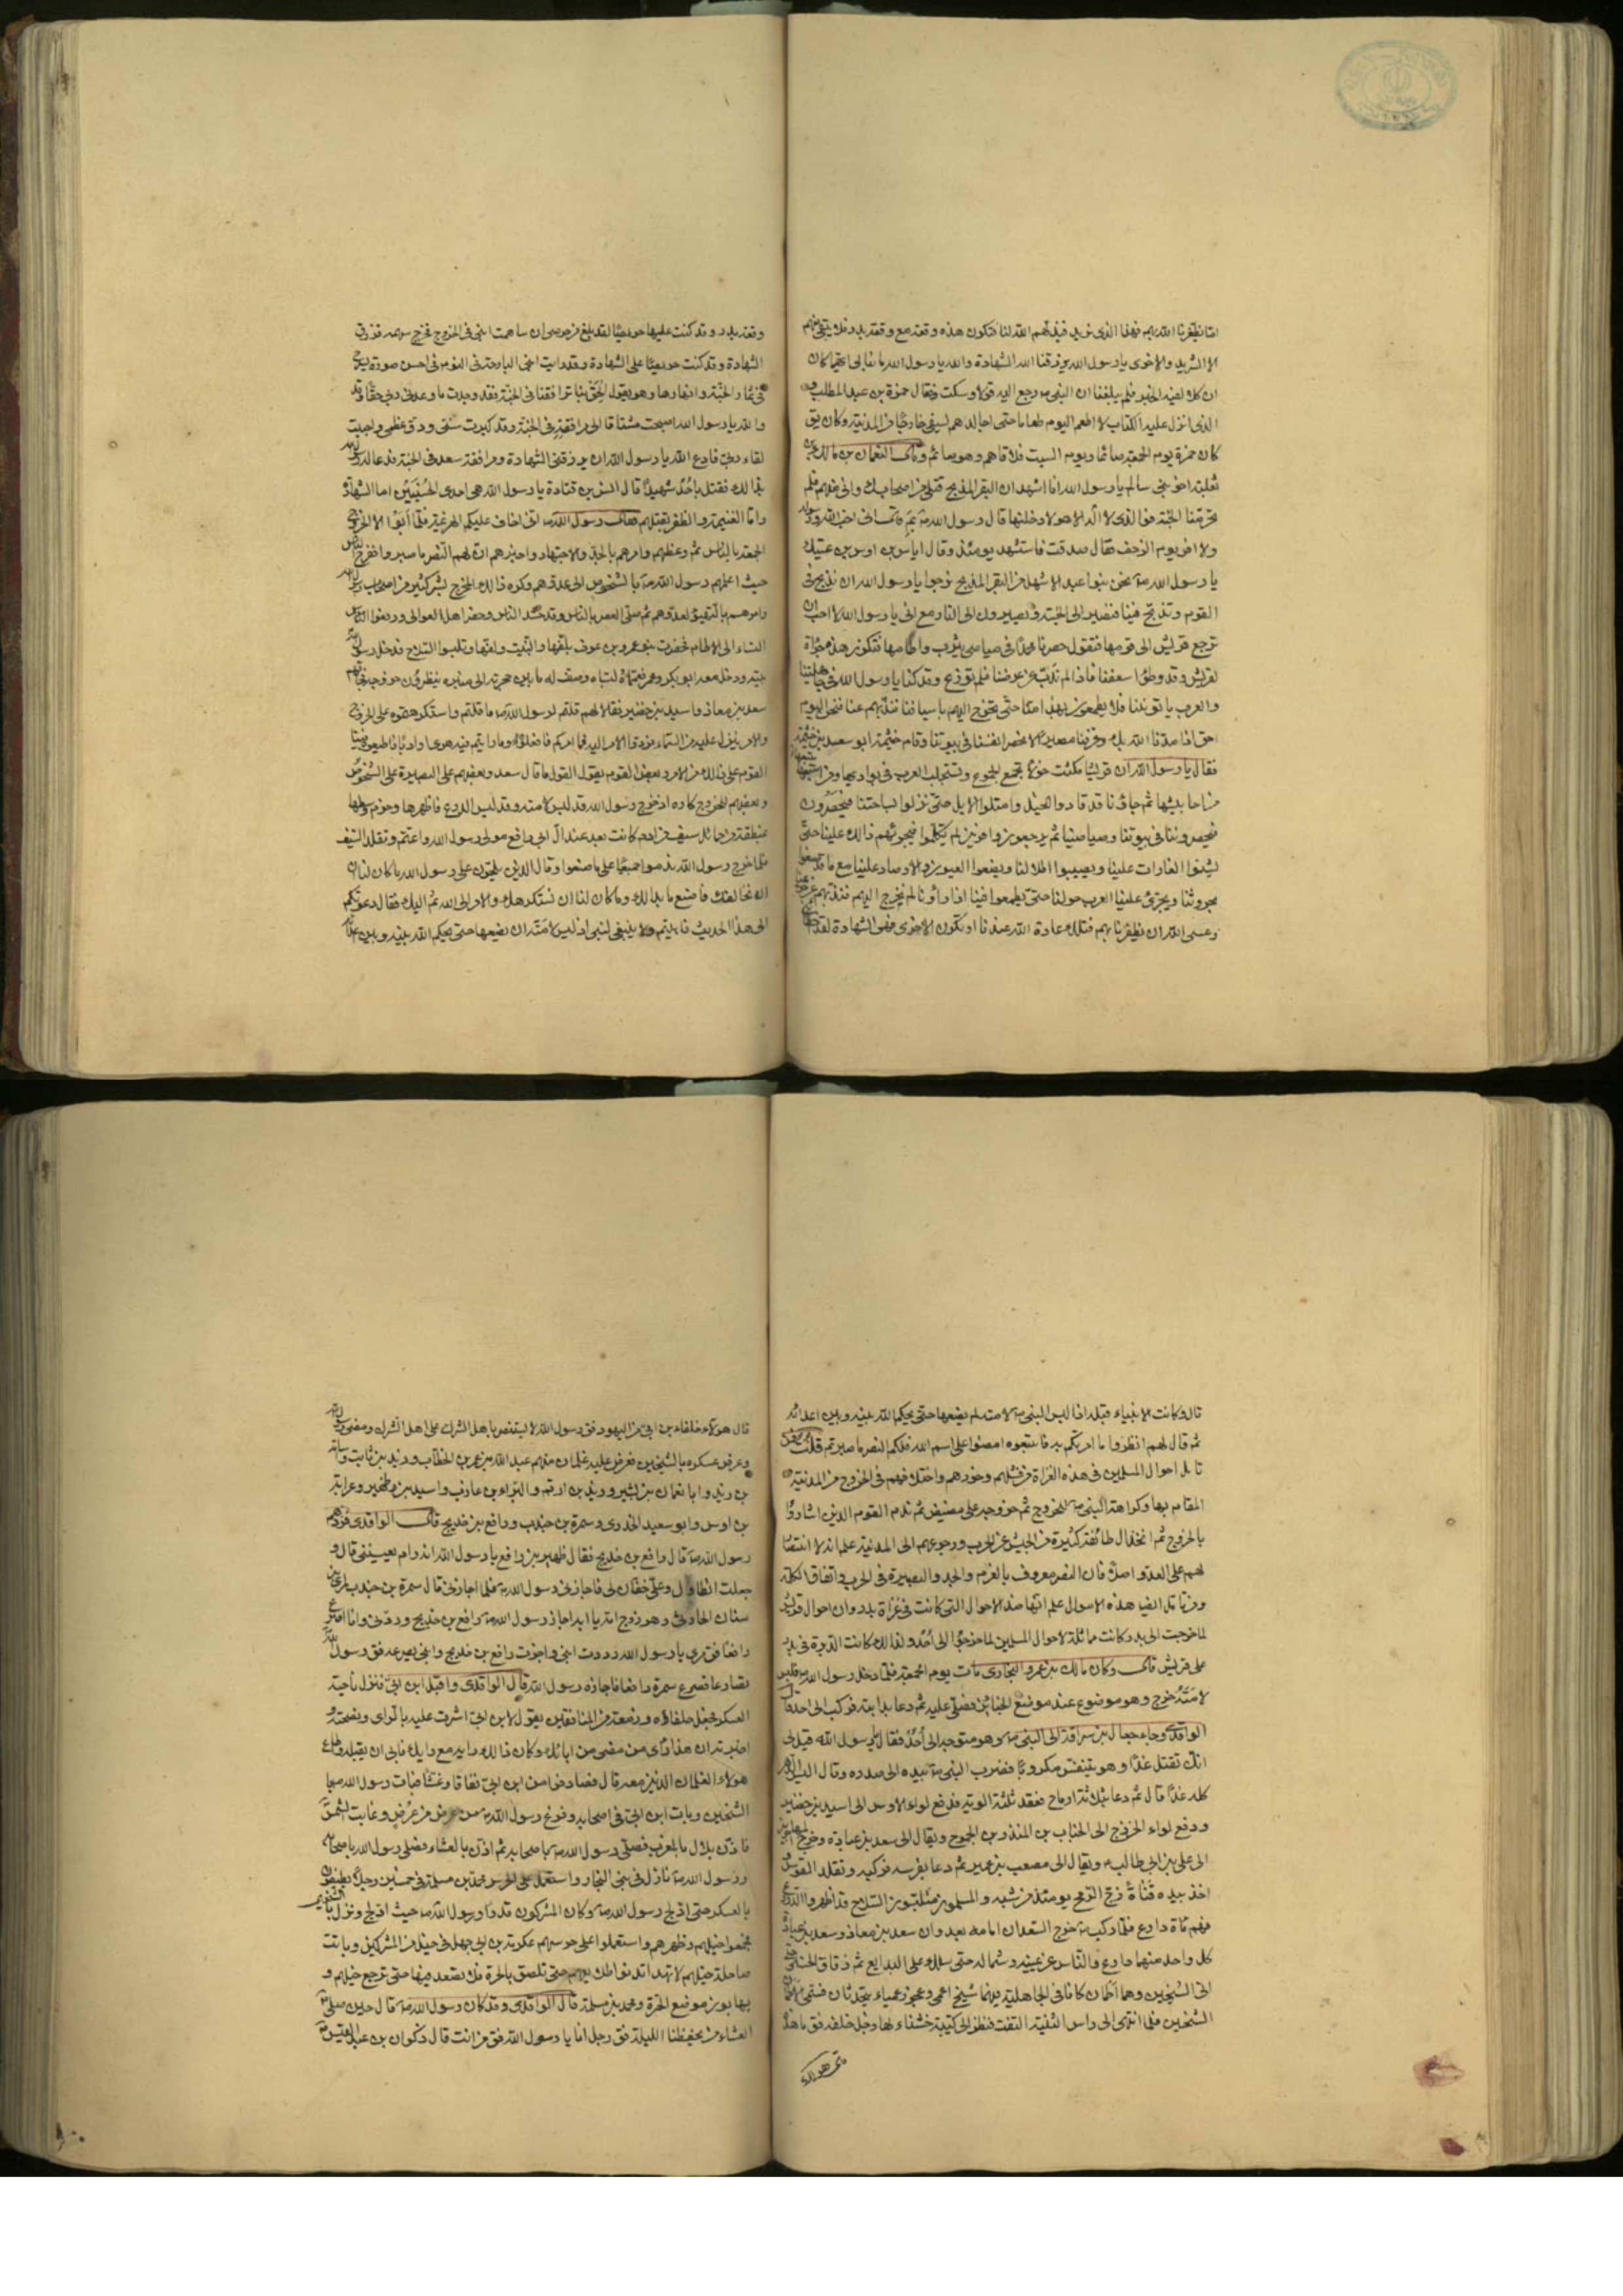 اما نظفرنا الله بهم فهذا الذى نريد فيذلهم الله لنا فتكون هذه وقعة مع وقعة بدر فلا يبقى منهم
الا الشريد والاخرى يا رسول الله يرزقنا الله الشهادة والله يا رسول الله ما نبالى ايهما كان
ان كلا لفيه الخير فلم يبلغنا ان النبى ص رجع اليه قولا وسكت وقال حمزة بن عبد المطلب
الذى انزل عليه الكتاب لا اطعم اليوم طعاما حتى اجالدهم بسيفى خارجا من المدينة وكان يق
كان حمزة يوم الجمعة صائما ويوم السبت فلاقاهم وهو صائم وقال النعمان بن مالك بن
ثعلبة اخو بنى سالم يا رسول الله انا اشهد ان البقر المذبح قتلى من اصحابك وانى منهم فلم
تحرمنا الجنة فوالذى لا اله الا هو لادخلنها قال رسول الله ص بم قال انى احب الله ورسوله
ولا افر يوم الزحف فقال صدقت فاستشهد يومئذ وقال اياس بن اوس بن عتيك
يا رسول الله ص نحن بنوا عبد الاشهل من البقر المذبح نرجوا يا رسول الله ان نذبح فى
القوم ويذبح فينا فنصير الى الجنة ويصيرون الى النار مع انى يا رسول الله لا احب ان
ترجع قريش الى قومها فتقول حصرنا محمدا فى صياصى يثرب واطامها فتكون هذه جراة
لقريش وقد وطؤا سعفنا فاذا لم نذب عن عرضنا فلم نزرع وقد كنا يا رسول الله فى جاهليتنا
والعرب ياتوننا فلا يطمعون بهذا منا حتى نخرج اليهم باسيافنا نذبهم عنا فنحن اليوم
احق اذا مدنا الله بك وعرفنا مصيرنا لا نحصر انفسنا فى بيوتنا وقام خيثمة ابو سعد بن خيثمة
فقال يا رسول الله ان قريشا مكثت حولا تجمع الجموع وتستجلب العرب فى بواديها ومن اتبعها
من احابيشها ثم جاؤنا قد قادوا الخيل وامتطوا الابل حتى نزلوا بساحتنا فيحصرون
فيحصروننا فى بيوتنا وصياصينا ثم يرجعون وافرين لم يكلموا فيجرئهم ذالك علينا حتى
يشنوا الغارات علينا ويصيبوا اطلالنا ويضعوا العيون والارصاد علينا مع ما قد صنعوا
بحروثنا ويجترى علينا العرب حولنا حتى يطمعوا فينا اذا راونا لم نخرج اليهم فنذبهم عن حريمنا
وعسى الله ان يظفرنا بهم فتلك عادة الله عندنا او تكون الاخرى فهى الشهادة لقد اخطأتنى
وقعة بدر وقد كنت عليها حريصا لقد بلغ من حرصى ان ساهمت ابنى فى الخروج فخرج سهمه فرزق
الشهادة وقد كنت حريصا على الشهادة وقد رايت ابنى البارحة فى النوم فى احسن صورة يسرح
فى ثمار الجنة وانهارها وهو يقول الحق بنا ترافقنا فى الجنة فقد وجدت ما وعدنى ربى حقا وقد
والله يا رسول الله اصبحت مشتاقا الى مرافقته فى الجنة وقد كبرت سنى ودق عظمى واحببت
لقاء ربى فادع الله يا رسول الله ان يرزقنى الشهادة ومرافقة سعد فى الجنة فدعا له رسول الله
بذالك فقتل باحد شهيدا قال انس بن قتادة يا رسول الله هى احدى الحسنيين اما الشهادة
واما الغنيمة والظفر بقتلهم فقال رسول الله ص انى اخاف عليكم الهزيمة فلما ابوا الا الخروج
الجمعة بالناس ثم وعظهم وامرهم بالجد والاجتهاد واخبرهم ان لهم النصر ما صبروا ففرح الناس
حيث اعلمهم رسول الله ص بالشخوص الى عدوهم وكره ذالك المخرج بشر كثير من اصحاب رسول الله
وامرهم بالتهيؤ لعدوهم ثم صلى العصر بالناس وقد حشد الناس وحضر اهل العوالى ورفعوا النساء
النساء الى الاطام فحضرت بنو عمرو بن عوف بلفها والنبيت ولفها وتلبسوا السلاح فدخل رسول الله
بيته ودخل معه ابو بكر وعمر فعمماه ولبساه وصف له ما بين حجرته الى منبره ينظرون خروجه فجاءهم
سعد بن معاذ واسيد بن حضير فقالا لهم قلتم لرسول الله ص ما قلتم واستكرهتموه على الخروج
والامر ينزل عليه من السماء فردوا الامر اليه فما امركم فافعلوه وما رايتم فيه هوى او ادبا فاطيعوه فبينا
القوم على ذالك من الامر وبعض القوم يقول القول ما قال سعد وبعضهم على البصيرة على الشخوص
وبعضهم للخروج كاره اذ خرج رسول الله قد لبس لامته وقد لبس الدرع فاظهرها وحزم وسطها
بمنطقة من حمائل سيف من ادم كانت بعد عند آل ابى رافع مولى رسول الله واعتم وتقلد السيف
فلما خرج رسول الله ندموا جميعا على ما صنعوا وقال الذين يلحون على رسول الله ما كان لنا ان
ان نخالفك فاصنع ما بدا لك وما كان لنا ان نستكرهك والامر الى الله ثم اليك فقال دعوتكم
الى هذا الحديث فابيتم ولا ينبغى لنبى اذ لبس لامته ان يضعها حتى يحكم الله بينه وبين اعدائه
قال وكانت الانبياء قبله اذا لبس النبى ص لامته لم يضعها حتى يحكم الله بينه وبين اعدائه
ثم قال لهم انظروا ما امرتكم به فاتبعوه امضوا على اسم الله فلكم النصر ما صبرتم قلت فمن
تامل احوال المسلمين فى هذه الغزاة من فشلهم وخورهم واختلافهم فى الخروج من المدينة
المقام بها وكراهة النبى ص للخروج ثم خروجه على مضض ثم ندم القوم الذين اشاروا
بالخروج ثم انخذال طائفة كثيرة من الجيش عن الحرب ورجوعهم الى المدينة علم انه لا انتصار
لهم على العدو اصلا فان النصر معروف بالعزم والجد والبصيرة فى الحرب واتفاق الكلمة
ومن تامل ايضا هذه الاحوال علم انها ضد الاحوال التى كانت فى غزاة بدر وان احوال قريش
لما خرجت الى بدر كانت مماثلة لاحوال المسلمين لما خرجوا الى احد ولذالك كانت الدبرة فى بدر
على قريش قال وكان مالك بن عمرو النجارى مات يوم الجمعة فلما دخل رسول الله ص فلبس
لامته وخرج وهو موضوع عند موضع الجنائز فصلى عليه ثم دعا بدابته فركب الى احد قال
الواقدى وجاء جعال بن سراقة الى النبى ص وهو متوجه الى احد فقال يا رسول الله قيل لى
انك تقتل غدا وهو يتنفس مكروبا فضرب النبى ص بيده الى صدره وقال اليس الدهر
كله غدا قال ثم دعا بثلاثة ارماح فعقد ثلثة الوية فدفع لواء الاوس الى اسيد بن حضير
ودفع لواء الخزرج الى الحباب بن المنذر بن الجموح ويقال الى سعد بن عبادة ودفع لواء المهاجرين
الى على بن ابى طالب ع ويقال الى مصعب بن عمير ثم دعا بفرسه فركبه وتقلد القوس
اخذ بيده قناة زج الرمح يومئذ من شبه والمسلمون متلبسون السلاح قد اظهروا الدروع
فيهم مائة دارع فلما ركب ص خرج السعدان امامه يعدوان سعد بن معاذ وسعد بن عبادة
كل واحد منهما دارع والناس عن يمينه وشماله حتى سلك على البدايع ثم زقاق الحسنى حتى
اتى الشيخين وهما اطمان كانا فى الجاهلية فيهما شيخ اعمى وعجوز عمياء يتحدثان فسمى الاطمان
الشيخين فلما انتهى الى راس الثنية التفت فنظر الى كتيبة خشناء لها زجل خلفه فق ما هذه
قال هؤلاء
قال هؤلاء حلفاء بن ابى من اليهود فق رسول الله لا يستنصر باهل الشرك على اهل الشرك ومضى رسول الله
وعرض عسكره بالشيخين فعرض عليه غلمان منهم عبد الله بن عمر بن الخطاب وزيد بن ثابت واسامة
بن زيد والنعمان بن بشير وزيد بن ارقم والبراء بن عازب واسيد بن ظهير وعرابة
بن اوس وابو سعيد الخدرى وسمرة بن جندب ورافع بن خديج قال الواقدى فردهم
رسول الله ص قال رافع بن خديج فقال ظهير بن رافع يا رسول الله انه رام يعيننى قال و
جعلت اتطاول وعلى خفان لى فاجازنى رسول الله ص فلما اجازنى قال سمرة بن جندب لمرى بن
سنان الحارثى وهو زوج امه يا ابه اجاز رسول الله ص رافع بن خديج وردنى وانا اصرع
رافعا فق مرى يا رسول الله رددت ابنى واجزت رافع بن خديج وابنى يصرعه فق رسول الله
تصارعا فصرع سمرة رافعا فاجازه رسول الله قال الواقدى واقبل ابن ابى فنزل ناحية
العسكر فجعل حلفاؤه ومن معه من المنافقين يقول لابن ابى اشرت عليه بالراى ونصحته و
اخبرته ان هذا راى من مضى من ابائك وكان ذالك رايه مع رايك فابى ان يقبله واطاع
هولاء الغلمان الذين معه قال فصادفوا من ابن ابى نفاقا وغشا فبات رسول الله ص
الشيخين وبات ابن ابى فى اصحابه وفرغ رسول الله ص من عرض من عرض وغابت الشمس
فاذن بلال بالمغرب فصلى رسول الله ص باصحابه ثم اذن بالعشاء فصلى رسول الله باصحابه
ورسول الله ص نازل فى بنى النجار واستعمل على الحرس محمد بن مسلمة فى خمسين رجلا يطيفون
بالعسكر حتى ادلج رسول الله ص وكان المشركون قد راو رسول الله ص حيث ادلج ونزل بالشيخين
فجمعوا خيلهم وظهرهم واستعملوا على حرسهم عكرمة بن ابى جهل فى خيل من المشركين وباتت
صاهلة خيلهم لا تهدا تدنوا طلايعهم حتى تلصق بالحرة فلا تصعد فيها حتى ترجع خيلهم و
يهابون موضع الحرة ومحمد بن مسلمة قال الواقدى وقد كان رسول الله ص قال حين صلى
العشاء من يحفظنا الليلة فق رجل انا يا رسول الله فق من انت قال ذكوان بن عبد القيس